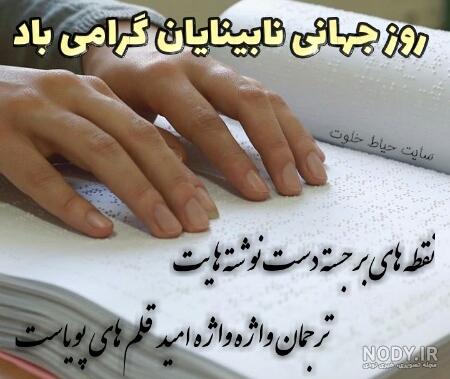 روز جهانی نابینایان گرامی باد
سایت حیاط خلوت
نقطه های برجسته دست نوشته هایت
ترجمان واژه واژه امید قلم های پویاست
NODY.IR
مجله تصویری، خبری نودی